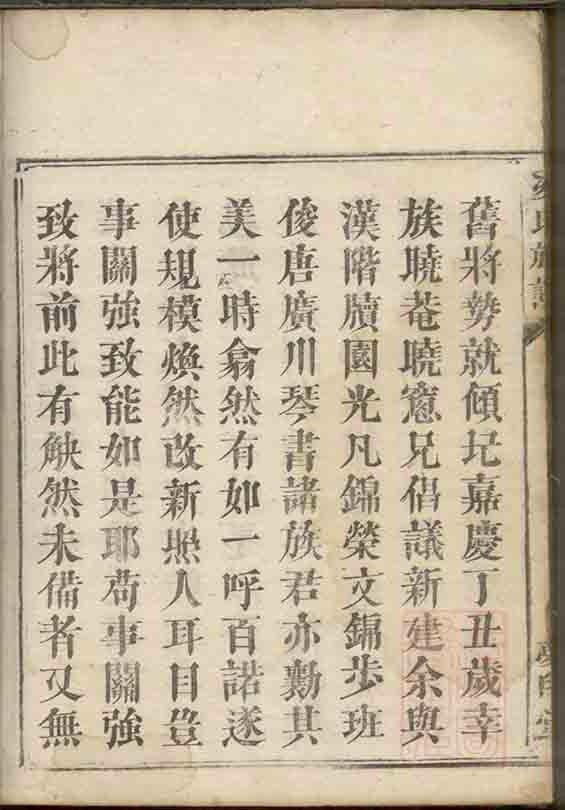 舊將勢就傾圮嘉慶丁丑歲幸
族曉菴曉窻兄倡議新建余與
漢階牘園光凡錦榮文錦步班
俊唐廣川琴書諸族君亦勷其
美一時翕然有如一呼百諾遂
使規模煥然改新照人耳目豈
事關強致能如是耶茍事關強
致將前此有觖然未備者又無